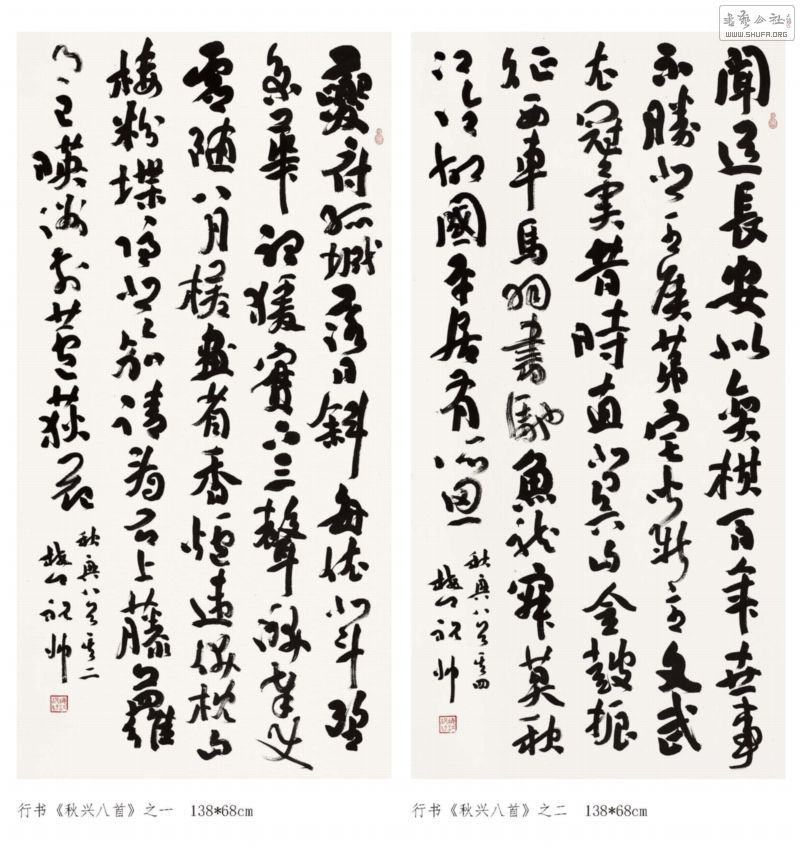 书艺公社
WWW.SHUFA.ORG
夔府孤城落日斜每依北斗望
京華聽猿實下三聲淚奉使
虛隨八月槎畫省香爐違伏枕山
樓粉堞隱悲笳請看石上藤蘿
月已映洲前蘆荻花
秋興八首其二
祝帅
聞道長安似奕棋百年世事
不勝悲王侯第宅皆新主文武
衣冠異昔時直北關山金鼓振
征西車馬羽書馳魚龍寂寞秋
江冷故國平居有所思
秋興八首其四
祝帅
行书《秋兴八首》之一 138*68cm
行书《秋兴八首》之二 138*68cm